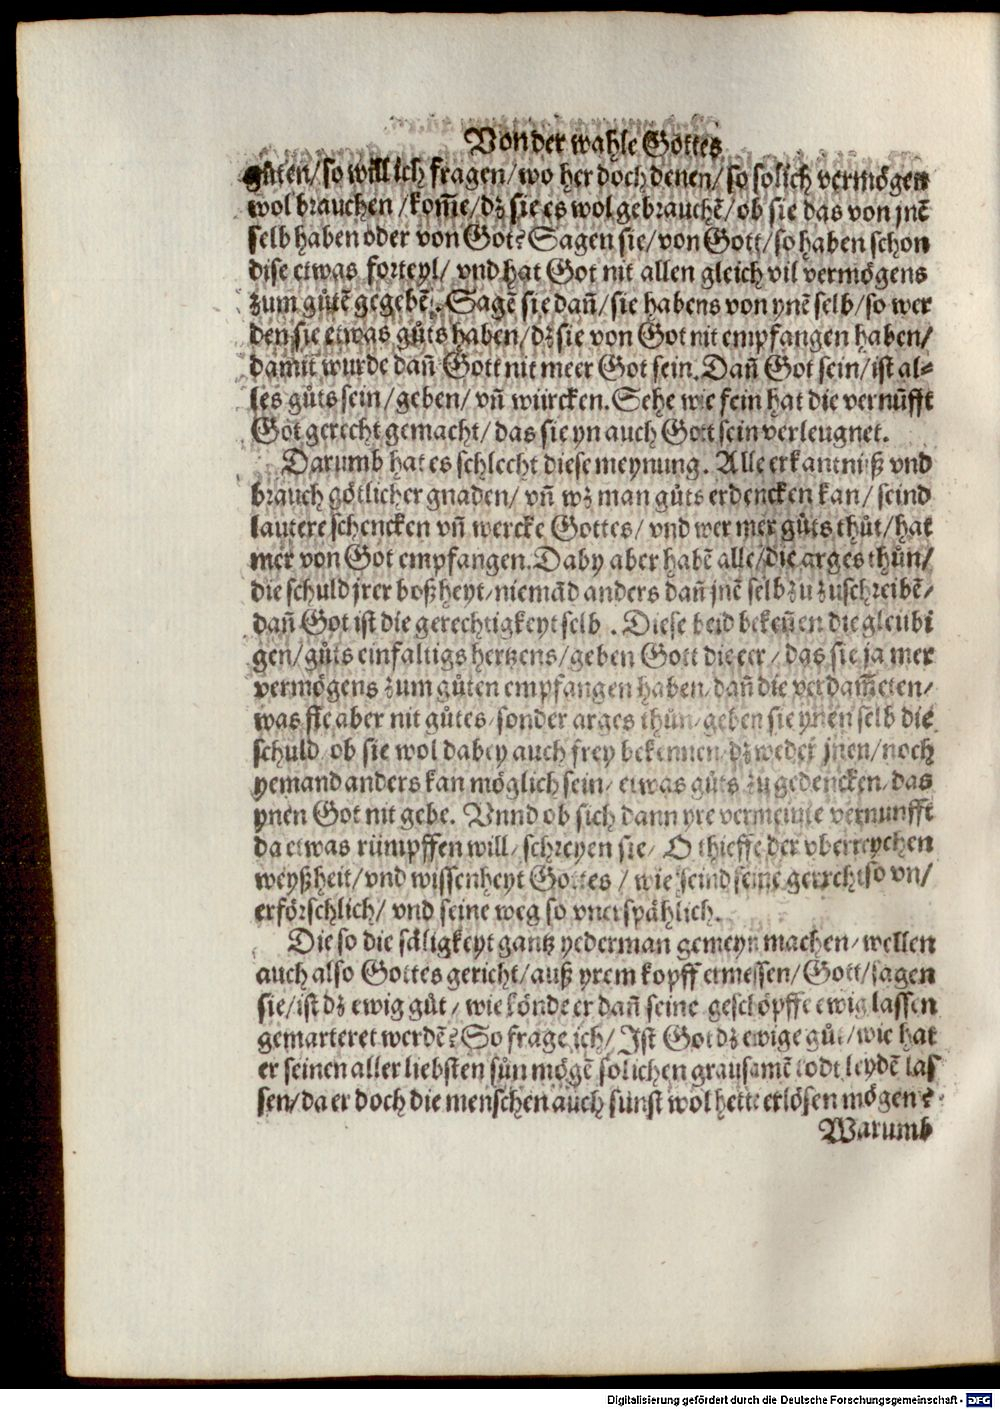 Von der wahle Gottes
gůten/ so will ich fragen/ wo her doch denen/ so solich vermögen
wol brauchen /kom̄e/ dz sie es wol gebrauchē/ ob sie das von jnē
selb haben oder von Got? Sagen sie/ von Gott/ so haben schon
dise etwas forteyl/ vnd hat Got nit allen gleich vil vermögens
zum gůtē gegebē. Sagē sie dañ/ sie habens von ynē selb/ so wer
den sie etwas gůts haben/ dz sie von Got nit empfangen haben/
damit wurde dañ Gott nit meer Got sein. Dañ Got sein/ ist al⸗
les gůts sein/ geben/ vñ würcken. Sehe wie fein hat die vernūfft
Got gerecht gemacht/ das sie yn auch Gott sein verleugnet.
Darumb hat es schlecht diese meynung. Alle erkantnüß vnd
brauch götlicher gnaden/ vñ wz man gůts erdencken kan/ seind
lautere schencken vñ wercke Gottes/ vnd wer mer gůts thůt/ hat
mer von Got empfangen. Daby aber habē alle/ die arges thůn/
die schuld jrer boßheyt/ niemād anders dañ jnē selb zů zůschreibē/
dañ Got ist die gerechtigkeyt selb . Diese beid bekeñen die gleubi
gen/ gůts einfaltigs hertzens/ geben Gott die eer/ das sie ja mer
vermögens zum gůten empfangen haben/ dañ die verdam̄eten/
was sie aber nit gůtes/ sonder arges thůn/ geben sie ynen selb die
schuld/ ob sie wol dabey auch frey bekennen/ dz weder jnen/ noch
yemand anders kan möglich sein/ etwas gůts zů gedencken/ das
ynen Got nit gebe. Vnnd ob sich dann yre vermeinte vernunfft
da etwas rümpffen will/ schreyen sie/ O thieffe der vberreychen
weyßheit/ vnd wissenheyt Gottes / wie seind seine gerecht so vn/
erförschlich/ vnd seine weg so vnerspählich.
Die so die säligkeyt gantz yederman gemeyn machen/ wellen
auch also Gottes gericht/ auß yrem kopff ermessen/ Gott/ sagen
sie/ ist dz ewig gůt/ wie könde er dañ seine geschöpffe ewig lassen
gemarteret werdē? So frage ich/ Ist Got dz ewige gůt/ wie hat
er seinen aller liebsten sůn mögē solichen grausamē todt leydē las
sen/ da er doch die menschen auch sunst wol hette erlösen mögen?
Warumb
Digitalisierung gefördert durch die Deutsche Forschungsgemeinschaft - DFG